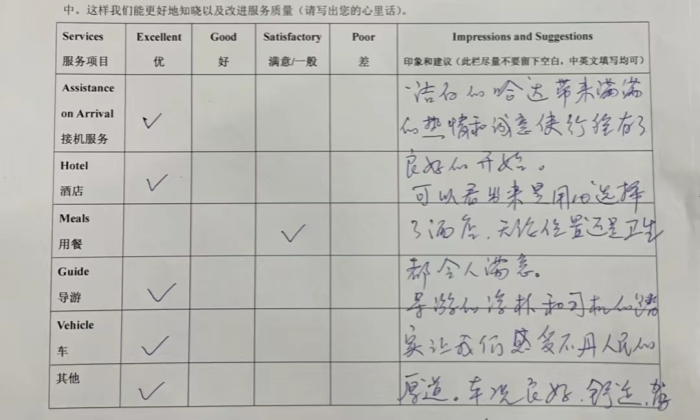 中。这样我们能更好地知晓以及改进服务质量（请写出您的心里话）。
Services Excellent Good Satisfactory Poor Impressions and Suggestions
服务项目 优 好 满意/一般 差 印象和建议（此栏尽量不要留下空白，中英文填写均可）
Assistance
on Arrival
接机服务
Hotel
酒店
Meals
用餐
Guide
导游
Vehicle
车
其他
洁白的哈达带来满满
的热情和诚意使行程有了
良好的开始。
可以看出来是用心选择
了酒店，无论位置还是卫生
都令人满意。
导游的淳朴和司机的
实让我们感受不丹人民的
厚道。车况良好，舒适，